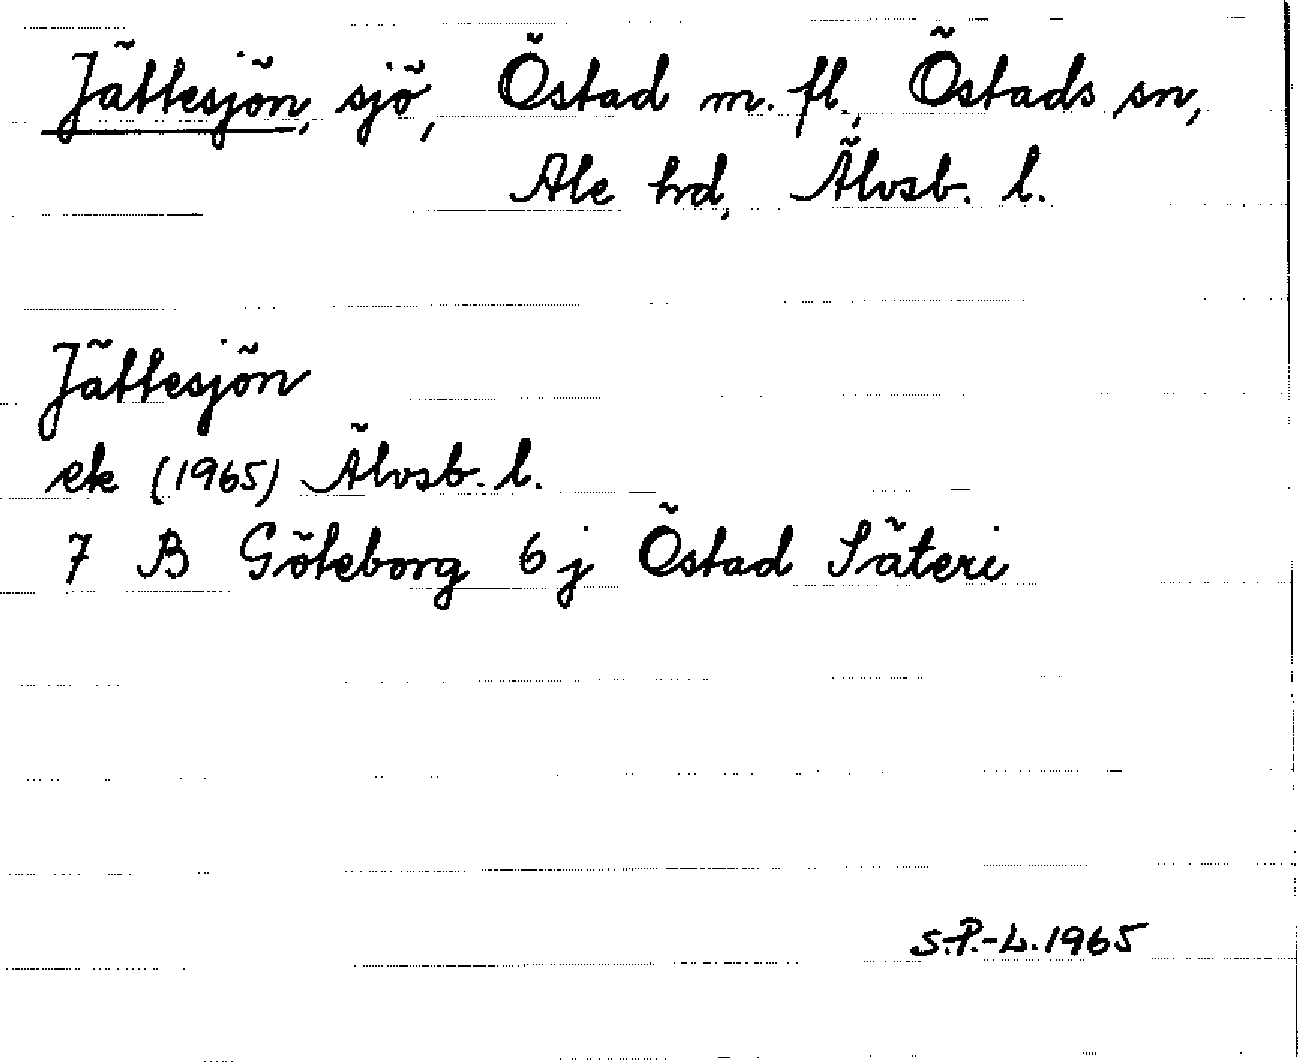 Jättesjön, sjö, Östad m. fl., Östads sn,
Ale hd, Älvsb. l.
Jättesjön
ek (1965) Älvsb. l.
7 B Göteborg 6 j Östad Säteri
S.P.-L. 1965